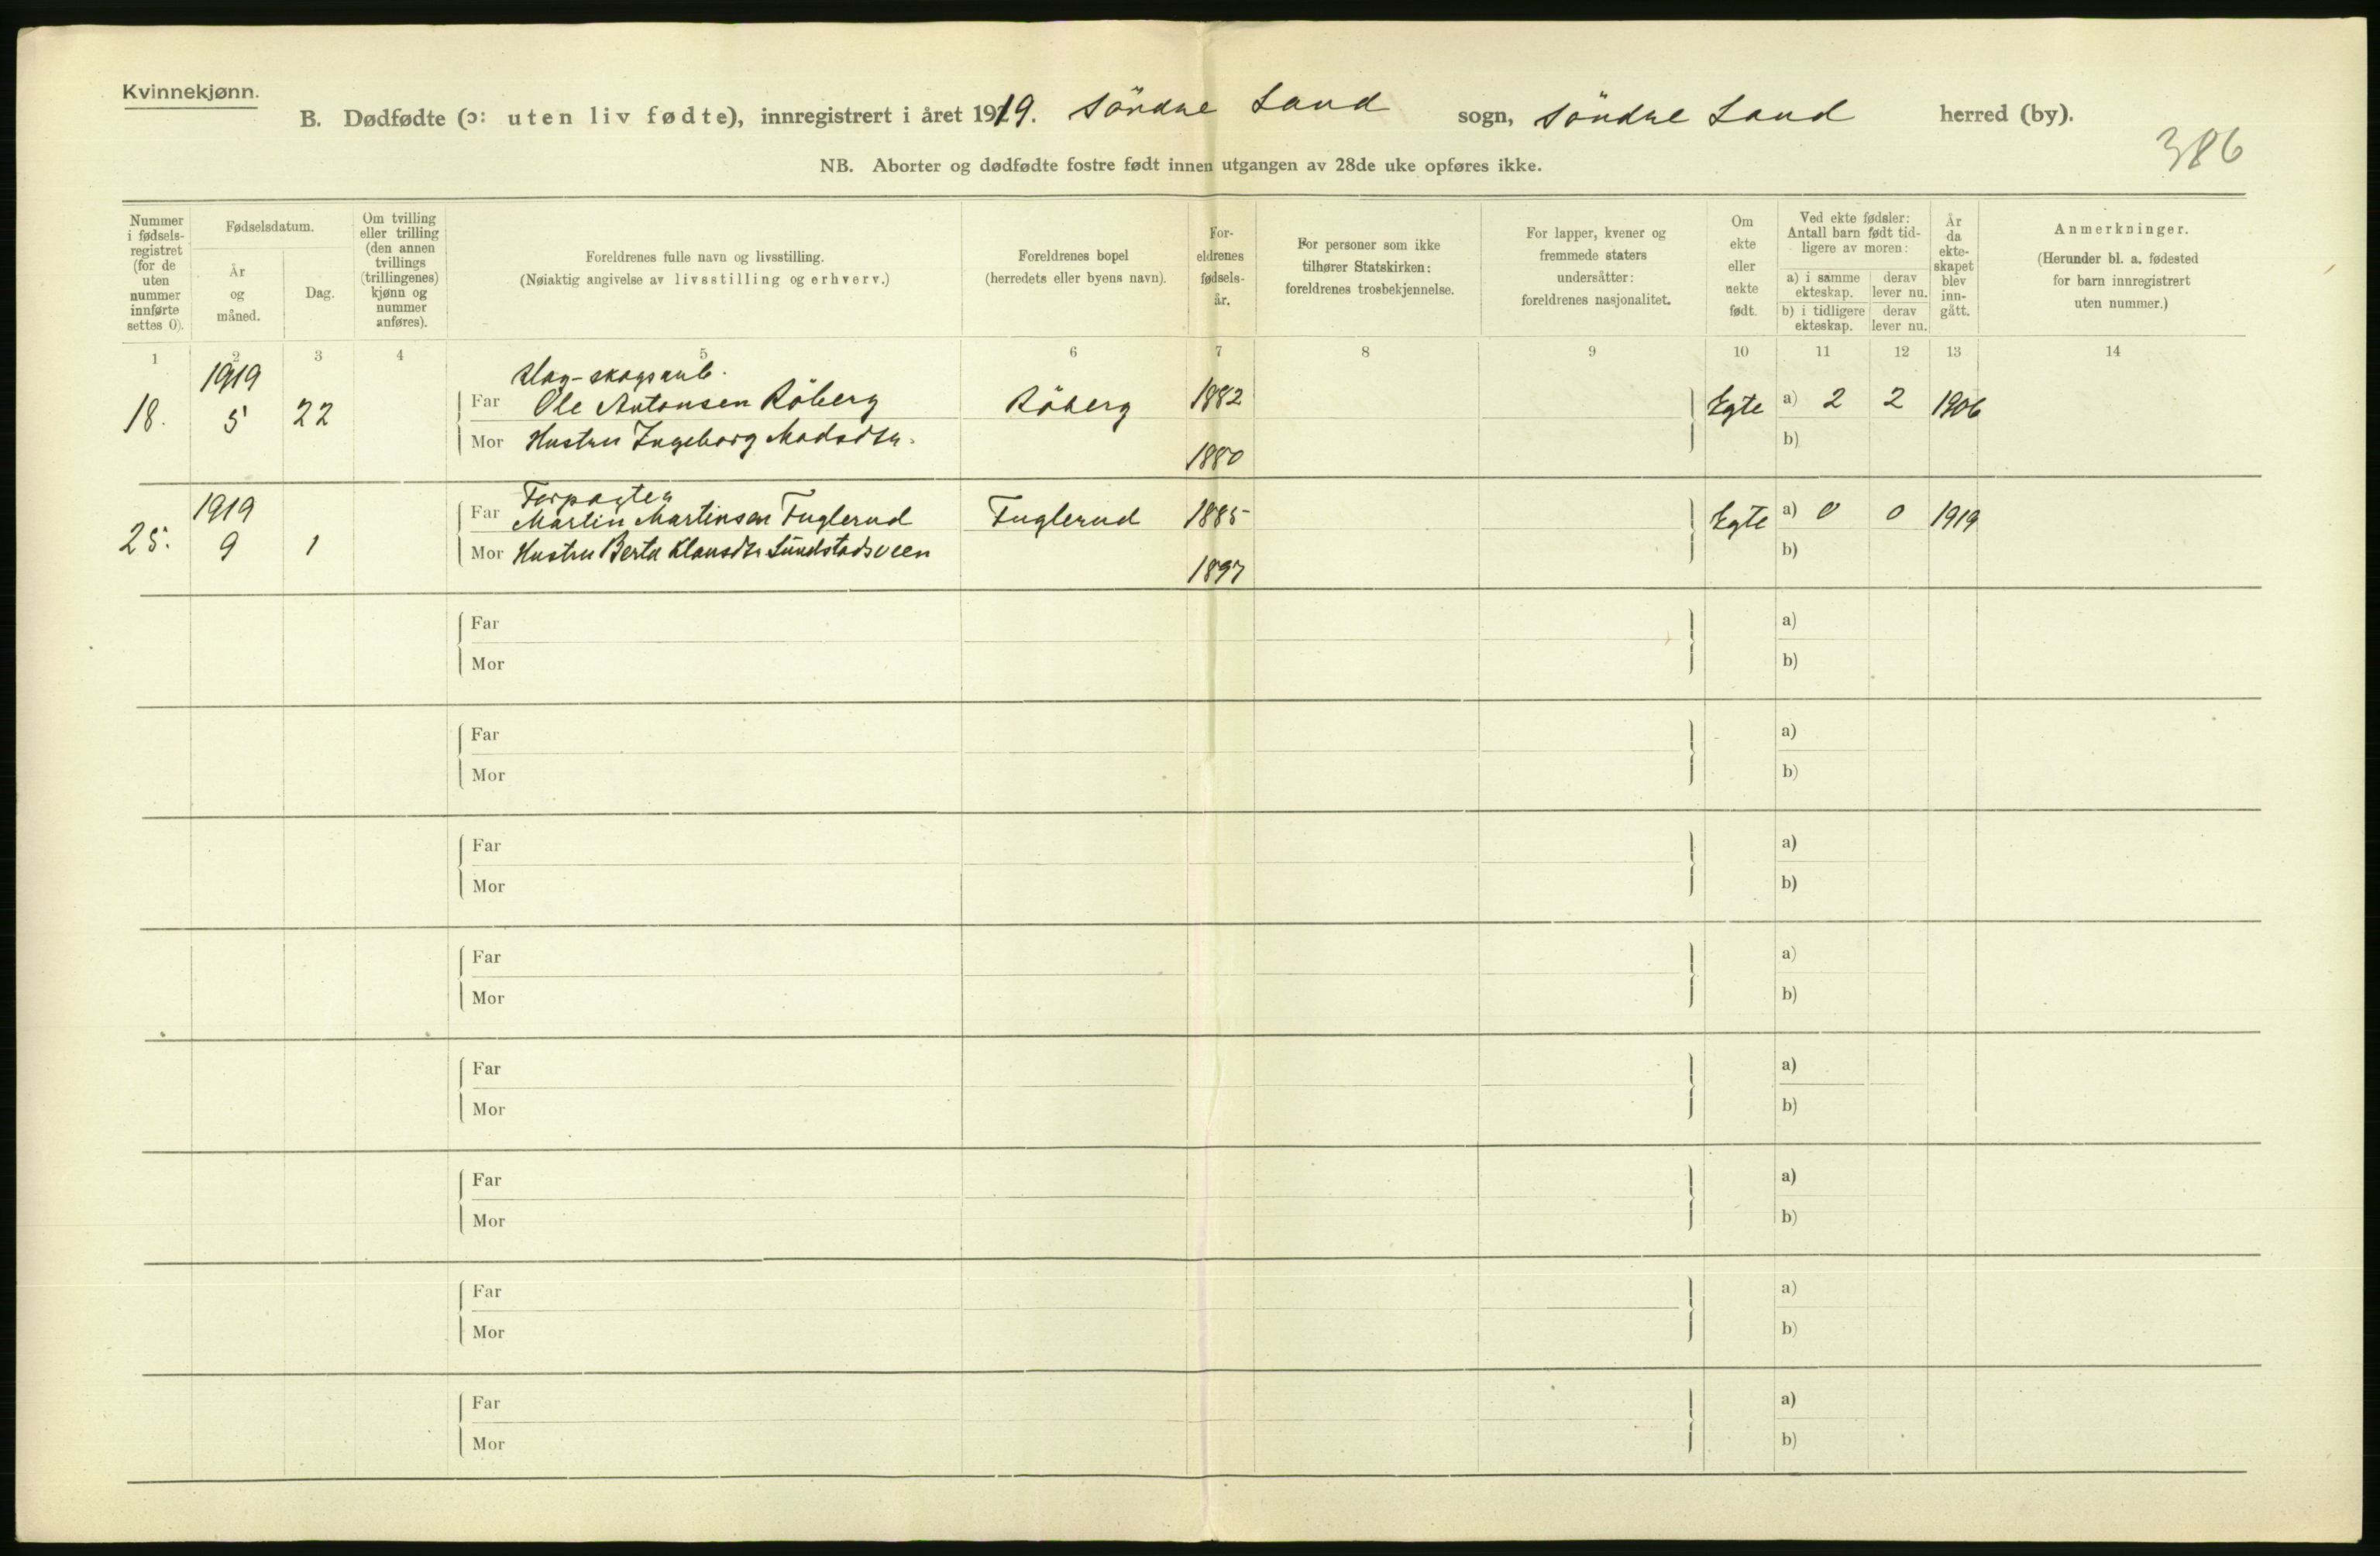 Kvinnekjønn.
B. Dødfødte (ɔ: uten liv fødte), innregistrert i året 1919. Söndre Land sogn, Söndre Land herred (by).
386
NB. Aborter og dødfødte fostre født innen utgangen av 28de uke opføres ikke.
Nummer i fødselsregistret (for de uten nummer innførte settes 0).
Fødselsdatum.
År og måned.
Dag.
Om tvilling eller trilling (den annen tvillings (trillingenes) kjønn og nummer anføres).
Foreldrenes fulle navn og livsstilling.
(Nøiaktig angivelse av livsstilling og erhverv.)
Foreldrenes bopel
(herredets eller byens navn).
Foreldrenes fødselsår.
For personer som ikke tilhører Statskirken: foreldrenes trosbekjennelse.
For lapper, kvener og fremmede staters undersåtter: foreldrenes nasjonalitet.
Om ekte eller uekte født.
Ved ekte fødsler: Antall barn født tidligere av moren:
a) i samme ekteskap. derav lever nu.
b) i tidligere ekteskap. derav lever nu.
År da ekteskapet blev inngått.
Anmerkninger.
(Herunder bl. a. fødested for barn innregistrert uten nummer.)
1 2 3 4 5 6 7 8 9 10 11 12 13 14
1919 skogsarb.
18. 5 22 Far Ole Antonsen Röberg Röberg 1882 Egte a) 2 2 1906
Mor Hustru Ingeborg Madsdtr. 1880 b)
1919 Forpagter
25. 9 1 Far Martin Martinsen Fuglerud Fuglerud 1885 Egte a) 0 0 1919
Mor Hustru Berta Klausdtr Sundstadsveen 1897 b)
Far a)
Mor b)
Far a)
Mor b)
Far a)
Mor b)
Far a)
Mor b)
Far a)
Mor b)
Far a)
Mor b)
Far a)
Mor b)
Far a)
Mor b)